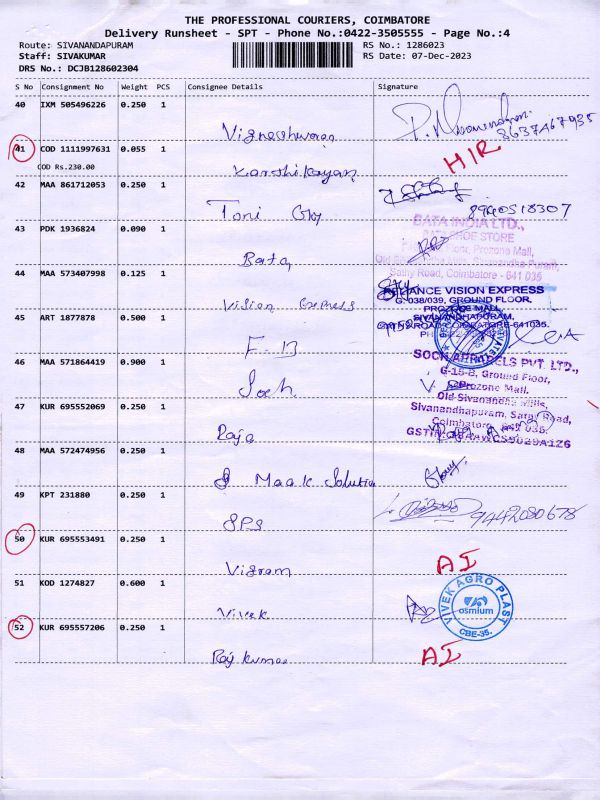 THE PROFESSIONAL COURIERS, COIMBATORE
Delivery Runsheet - SPT - Phone No.:0422-3505555 - Page No.:4
Route: SIVANANDAPURAM RS No.: 1286023
Staff: SIVAKUMAR RS Date: 07-Dec-2023
DRS No.: DCJB128602304
S No Consignment No Weight PCS Consignee Details Signature
40 IXM 505496226 0.250 1
Vigneshwaran 8637467935
41 COD 1111997631 0.055 1
COD Rs.230.00 Karthikayan HIR
42 MAA 861712053 0.250 1
Toni Guy 8940518307
43 PDK 1936824 0.090 1
BATA INDIA LTD.,
BATA SHOE STORE
Floor, Prozone Mall,
Bata
44 MAA 573407998 0.125 1
Sathy Road, Coimbatore - 641 035
RELIANCE VISION EXPRESS
G.038/039, GROUND FLOOR,
Vision Express PROZONE MALL
45 ART 1877878 0.500 1 SIVANANDHAPURAM,
SATHY ROAD COIMBATORE-641035.
F_B
46 MAA 571864419 0.900 1
SOCH APPARELS PVT. LTD.,
G-15-B, Ground Floor,
Soch Prozone Mall,
Old Sivanandha Mills,
47 KUR 695552069 0.250 1 Sivanandhapuram, Sathy Road,
Coimbatore - 641 035.
Raja
48 MAA 572474956 0.250 1
Maak Solution
49 KPT 231880 0.250 1
SPS 9442080678
50 KUR 695553491 0.250 1
Vigram AI
51 KOD 1274827 0.600 1
VIVEK AGRO PLAST
osmium
CBE-35.
Vivek
52 KUR 695557206 0.250 1
Raj kumar AI